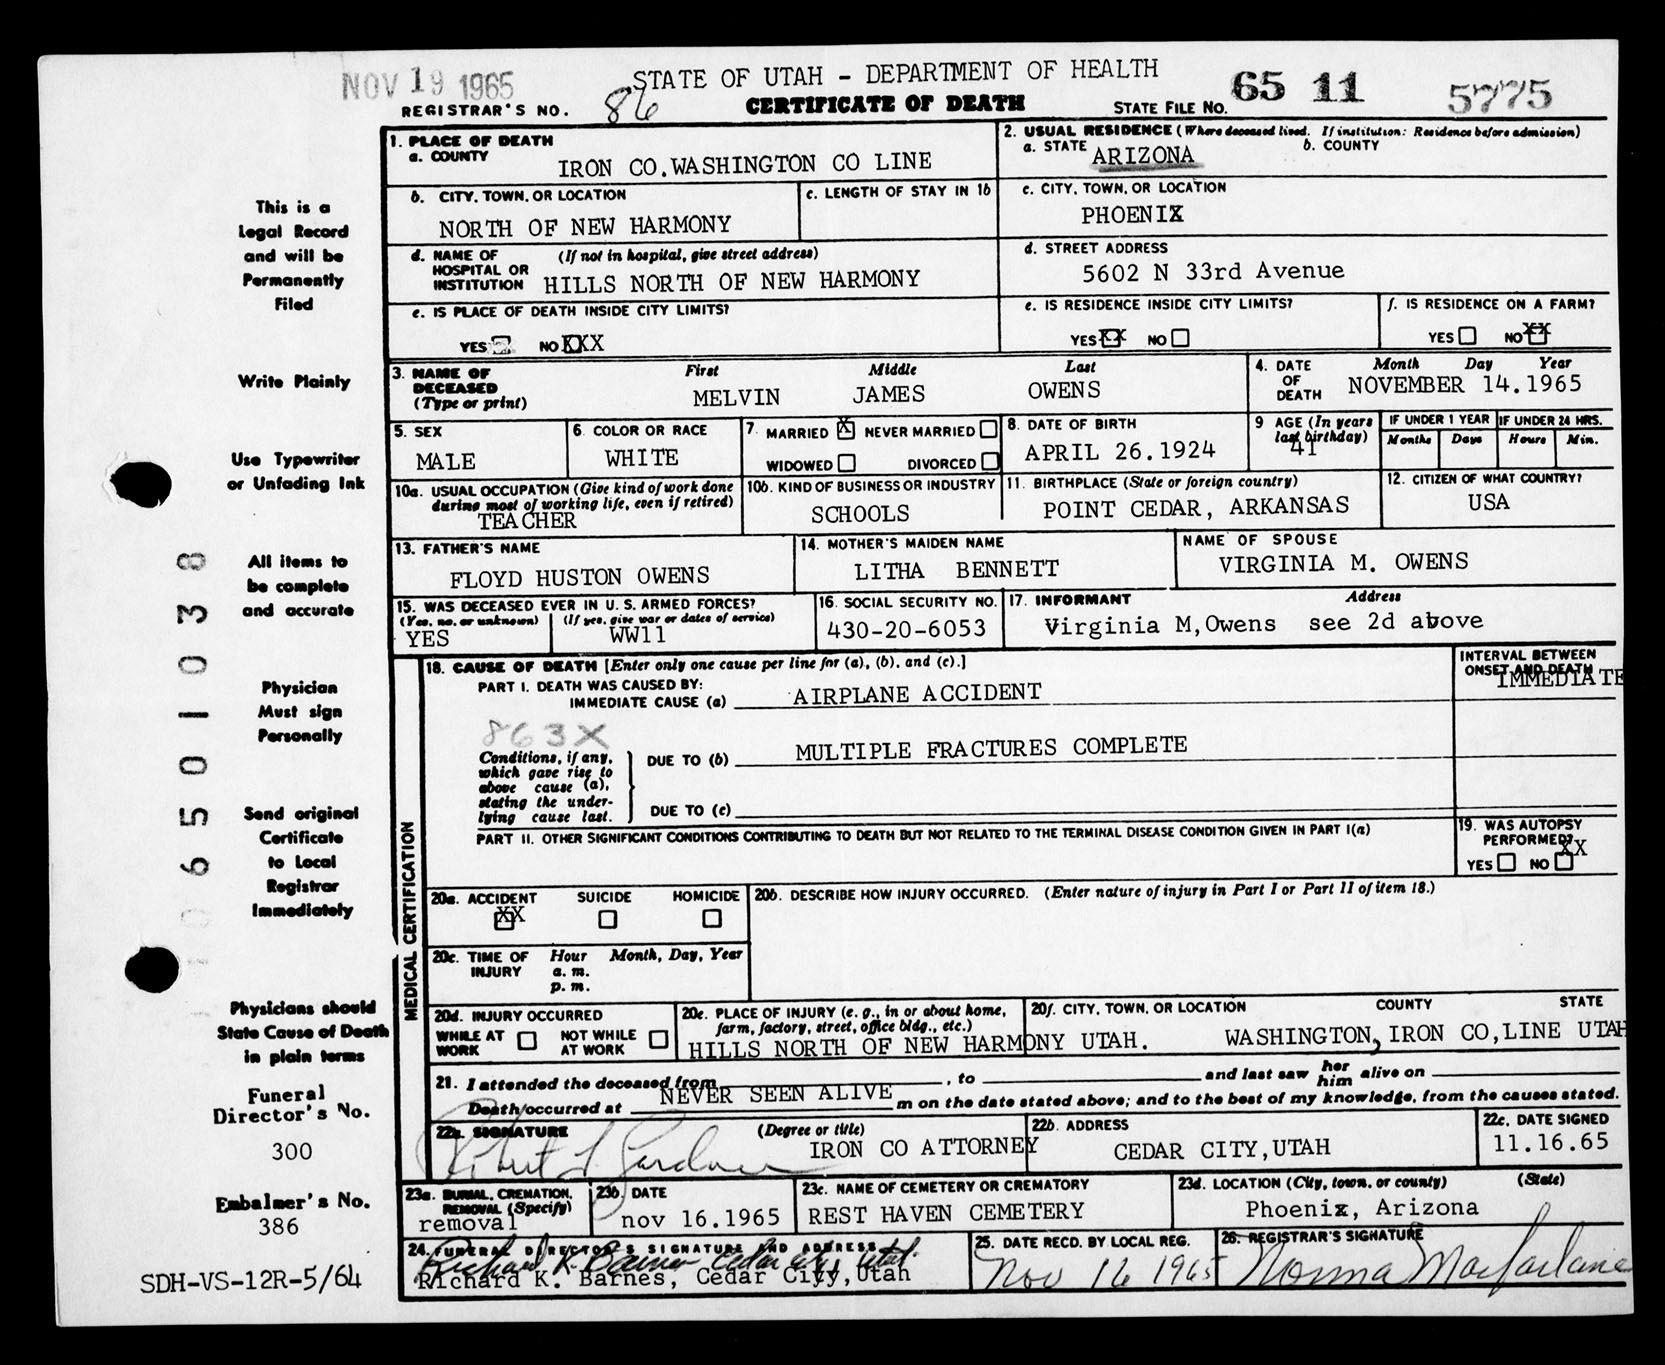 NOV 19 1965
STATE OF UTAH - DEPARTMENT OF HEALTH
65 11 5775
REGISTRAR'S NO. 86 CERTIFICATE OF DEATH STATE FILE NO.
1. PLACE OF DEATH
a. COUNTY
IRON CO.WASHINGTON CO LINE
2. USUAL RESIDENCE (Where deceased lived. If institution: Residence before admission)
a. STATE ARIZONA b. COUNTY
b. CITY, TOWN, OR LOCATION
NORTH OF NEW HARMONY
c. LENGTH OF STAY IN 1b
c. CITY, TOWN, OR LOCATION
PHOENIX
d. NAME OF HOSPITAL OR INSTITUTION (If not in hospital, give street address)
HILLS NORTH OF NEW HARMONY
d. STREET ADDRESS
5602 N 33rd Avenue
e. IS PLACE OF DEATH INSIDE CITY LIMITS?
YES NO XXX
e. IS RESIDENCE INSIDE CITY LIMITS?
YES XX NO
f. IS RESIDENCE ON A FARM?
YES NO XX
3. NAME OF DECEASED (Type or print)
First Middle Last
MELVIN JAMES OWENS
4. DATE OF DEATH Month Day Year
NOVEMBER 14.1965
5. SEX
MALE
6. COLOR OR RACE
WHITE
7. MARRIED X NEVER MARRIED
WIDOWED DIVORCED
8. DATE OF BIRTH
APRIL 26.1924
9 AGE (In years last birthday)
41
IF UNDER 1 YEAR IF UNDER 24 HRS.
Months Days Hours Min.
10a. USUAL OCCUPATION (Give kind of work done during most of working life, even if retired)
TEACHER
10b. KIND OF BUSINESS OR INDUSTRY
SCHOOLS
11. BIRTHPLACE (State or foreign country)
POINT CEDAR, ARKANSAS
12. CITIZEN OF WHAT COUNTRY?
USA
13. FATHER'S NAME
FLOYD HUSTON OWENS
14. MOTHER'S MAIDEN NAME
LITHA BENNETT
NAME OF SPOUSE
VIRGINIA M. OWENS
15. WAS DECEASED EVER IN U.S. ARMED FORCES?
(Yes, no, or unknown) (If yes, give war or dates of service)
YES WW11
16. SOCIAL SECURITY NO.
430-20-6053
17. INFORMANT Address
Virginia M,Owens see 2d above
MEDICAL CERTIFICATION
18. CAUSE OF DEATH [Enter only one cause per line for (a), (b), and (c).]
INTERVAL BETWEEN ONSET AND DEATH
PART I. DEATH WAS CAUSED BY:
IMMEDIATE CAUSE (a) AIRPLANE ACCIDENT IMMEDIATE
863X
Conditions, if any, which gave rise to above cause (a), stating the underlying cause last.
DUE TO (b) MULTIPLE FRACTURES COMPLETE
DUE TO (c)
PART II. OTHER SIGNIFICANT CONDITIONS CONTRIBUTING TO DEATH BUT NOT RELATED TO THE TERMINAL DISEASE CONDITION GIVEN IN PART I(a)
19. WAS AUTOPSY PERFORMED?
YES NO XX
20a. ACCIDENT SUICIDE HOMICIDE
XX
20b. DESCRIBE HOW INJURY OCCURRED. (Enter nature of injury in Part I or Part II of item 18.)
20c. TIME OF INJURY Hour Month, Day, Year
a. m.
p. m.
20d. INJURY OCCURRED
WHILE AT WORK NOT WHILE AT WORK
20e. PLACE OF INJURY (e. g., in or about home, farm, factory, street, office bldg., etc.)
20f. CITY, TOWN, OR LOCATION COUNTY STATE
HILLS NORTH OF NEW HARMONY UTAH. WASHINGTON, IRON CO,LINE UTAH
21. I attended the deceased from , to and last saw her him alive on
NEVER SEEN ALIVE
Death occurred at m on the date stated above; and to the best of my knowledge, from the causes stated.
22a. SIGNATURE (Degree or title)
IRON CO ATTORNEY
22b. ADDRESS
CEDAR CITY,UTAH
22c. DATE SIGNED
11.16.65
23a. BURIAL, CREMATION, REMOVAL (Specify)
removal
23b. DATE
nov 16.1965
23c. NAME OF CEMETERY OR CREMATORY
REST HAVEN CEMETERY
23d. LOCATION (City, town, or county) (State)
Phoenix, Arizona
24. FUNERAL DIRECTOR'S SIGNATURE AND ADDRESS
Richard K Barnes Cedar City Utah
Richard K. Barnes, Cedar City,Utah
25. DATE RECD. BY LOCAL REG.
Nov 16 1965
26. REGISTRAR'S SIGNATURE
Norma Macfarlane
This is a
Legal Record
and will be
Permanently
Filed
Write Plainly
Use Typewriter
or Unfading Ink
All items to
be complete
and accurate
Physician
Must sign
Personally
Send original
Certificate
to Local
Registrar
Immediately
Physicians should
State Cause of Death
in plain terms
Funeral
Director's No.
300
Embalmer's No.
386
SDH-VS-12R-5/64